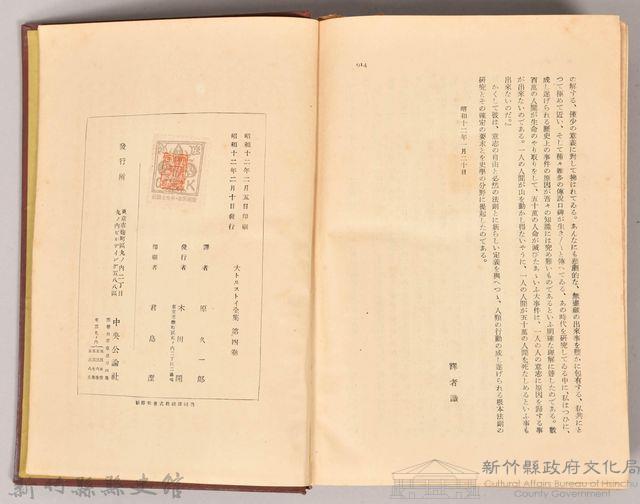 914
の解する、僅少の意義に對して捧はれてゐる。あんなにも悲劇的な、無盡蔵の出來事を豐かに包有する、私共にと
つて極めて近い、そして種々雜多の傳說口碑が生き〳〵と傳へてゐる、あの時代を硏究してゐる中に、『私はつひに、
成し遂げられる歷史上の事件の原因が吾々の知識には究め難いものであるといふ明確な理解に達したのである。數
百萬の人間が生命のやり取りをして、五十萬の人命が滅びたあゝいふ大事件に、一人の人の意志に原因を歸する事
が出來ないのである。一人の人間が山を動かし得ないそうに、一人の人間が五十萬の人間を死なしめるといふ事も
出來ないのだ。』
かくして彼は、意志の自由と必然の法則とに新らしい定義を與へつゝ、人類の行動の成し遂げられる根本法則の
硏究とその確定の要求とを史學の分野に提起したのである。
昭和十二年一月二十日
譯者識
昭和十二年二月五日印刷
昭和十二年二月十日發行
大トルストイ全集 第四卷
譯者 原久一郎
發行者
印刷者 君島潔
發行所
東京市麴町區丸ノ內二丁目
丸ノ內ビルディング五八八區
中央公論社
新竹縣縣史館
新竹縣政府文化局
Cultural Affairs Bureau of Hsinchu
County Government